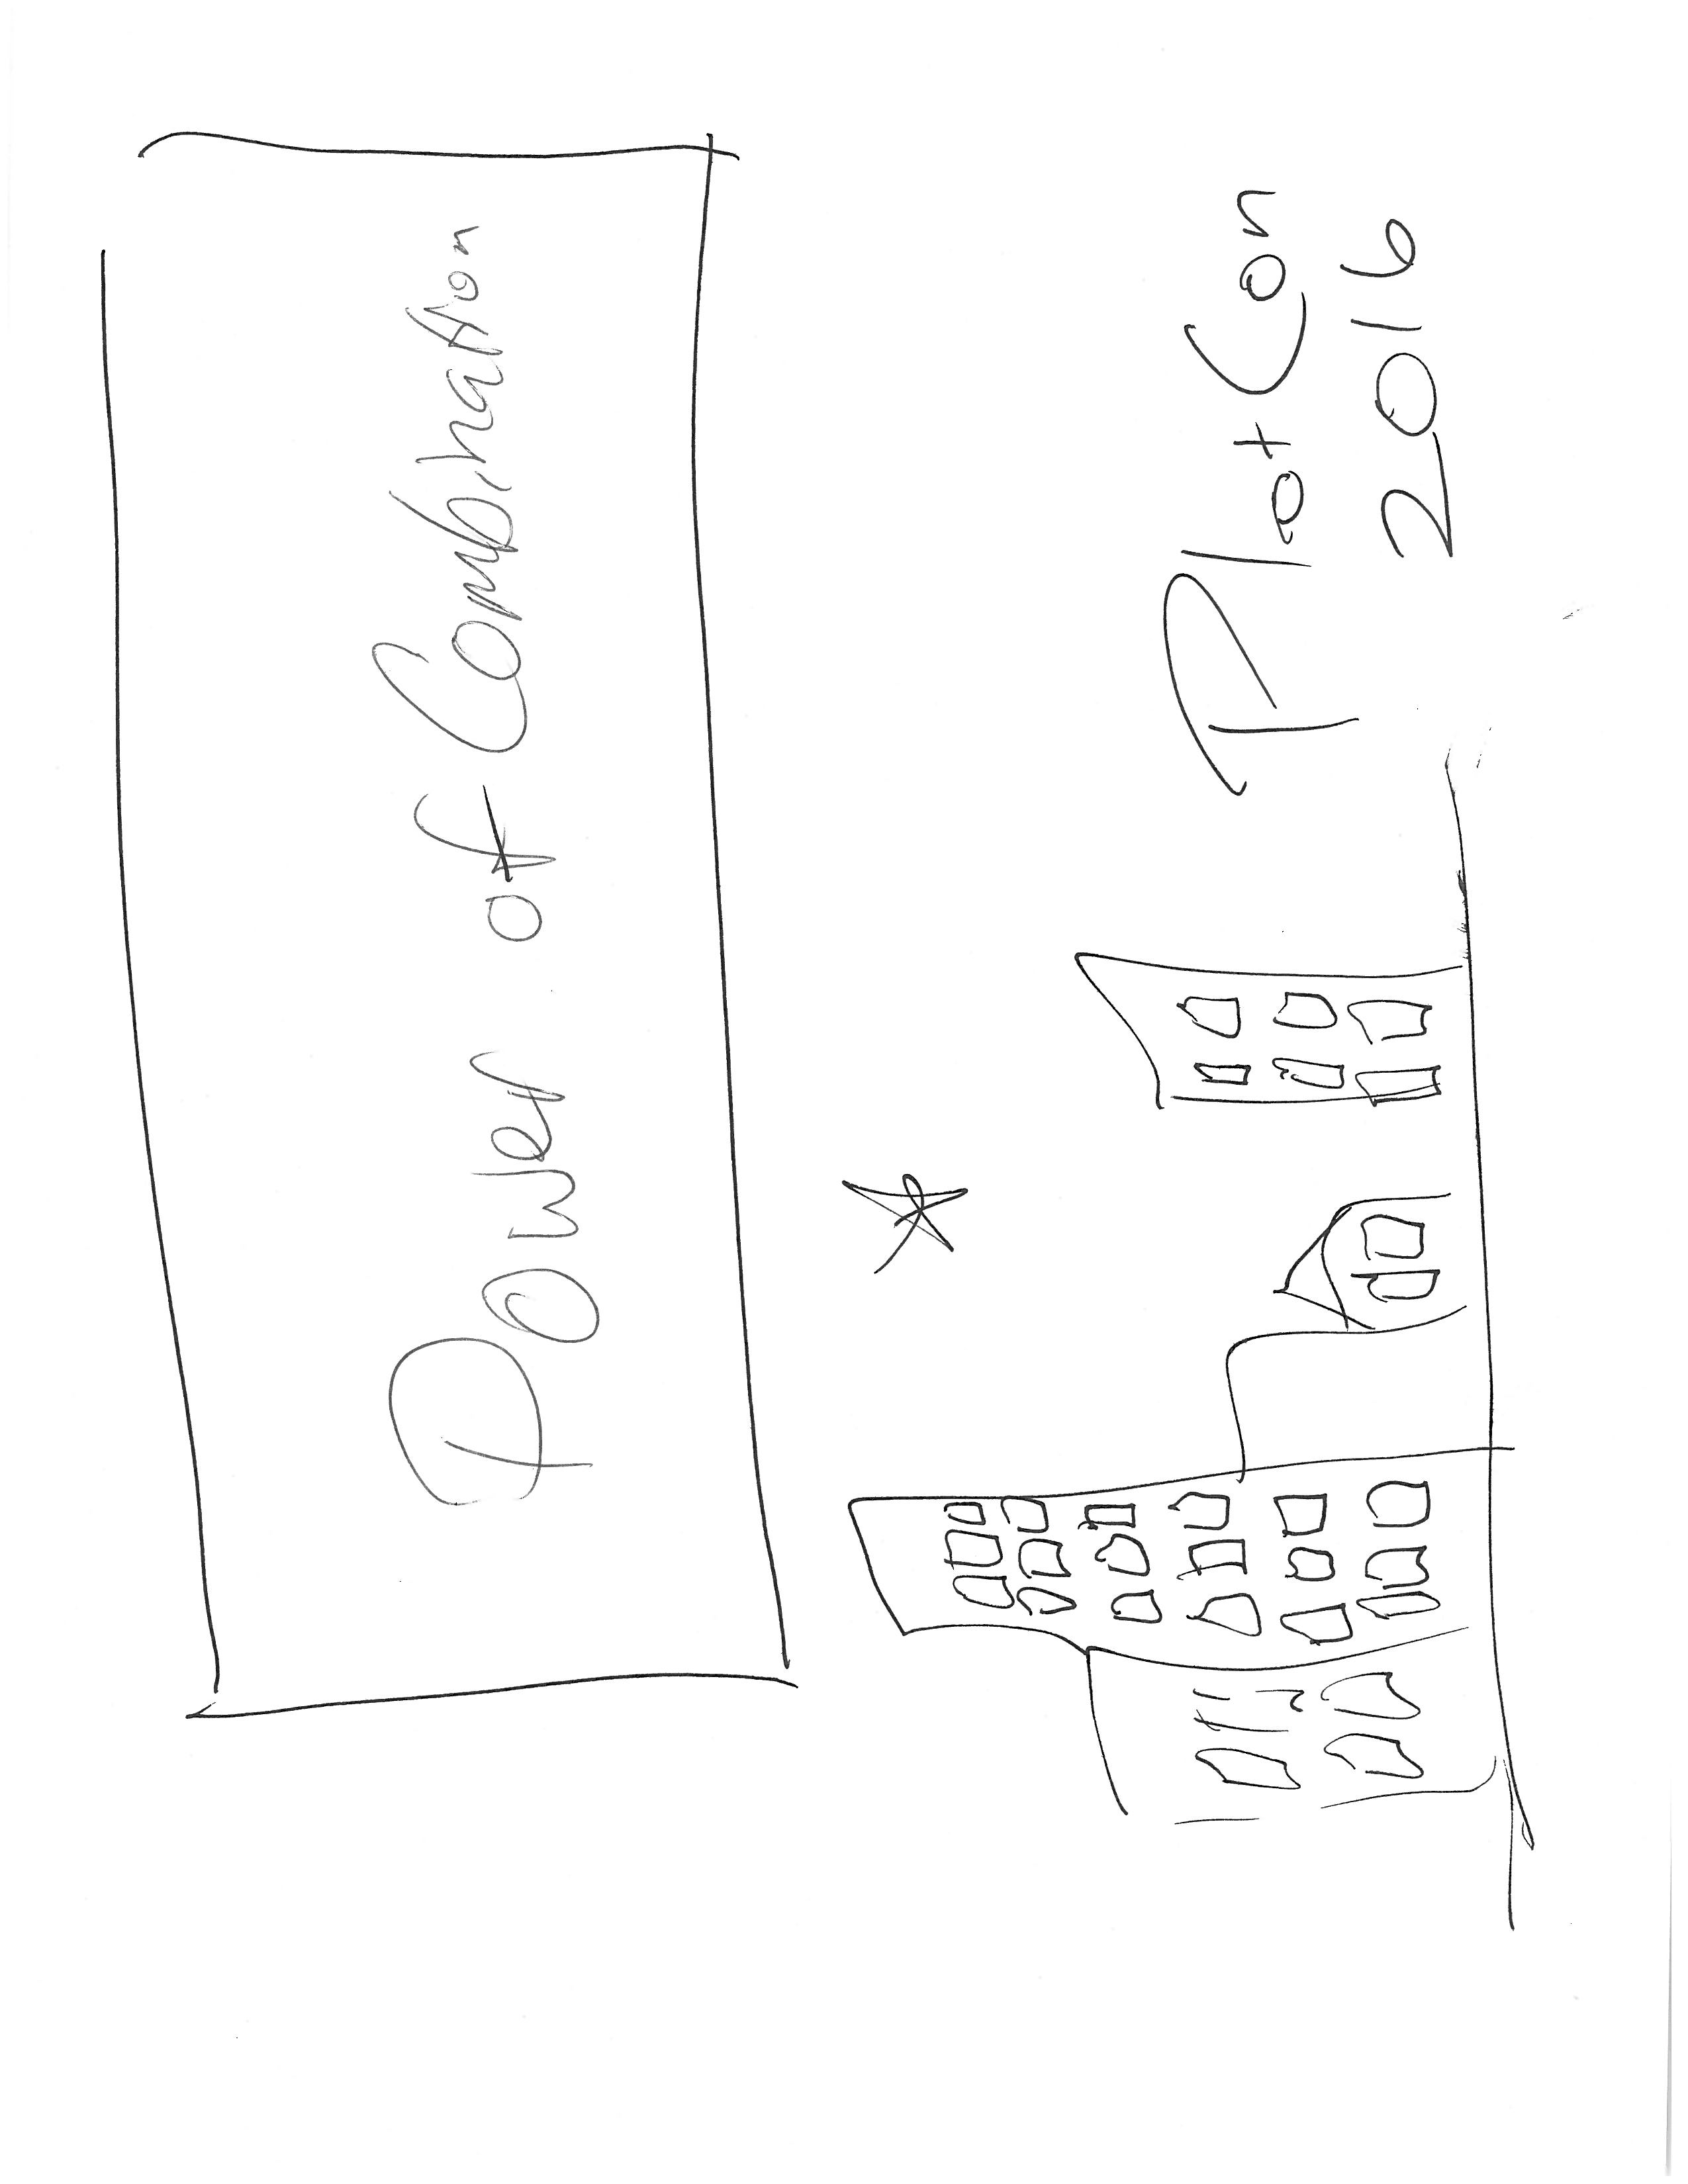 Power of Combination
PlotCon
2016